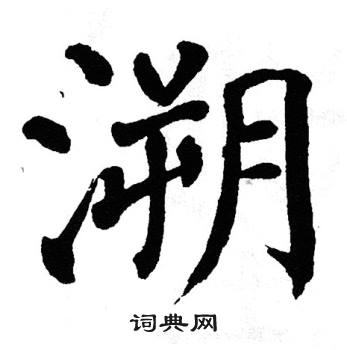 溯
词典网